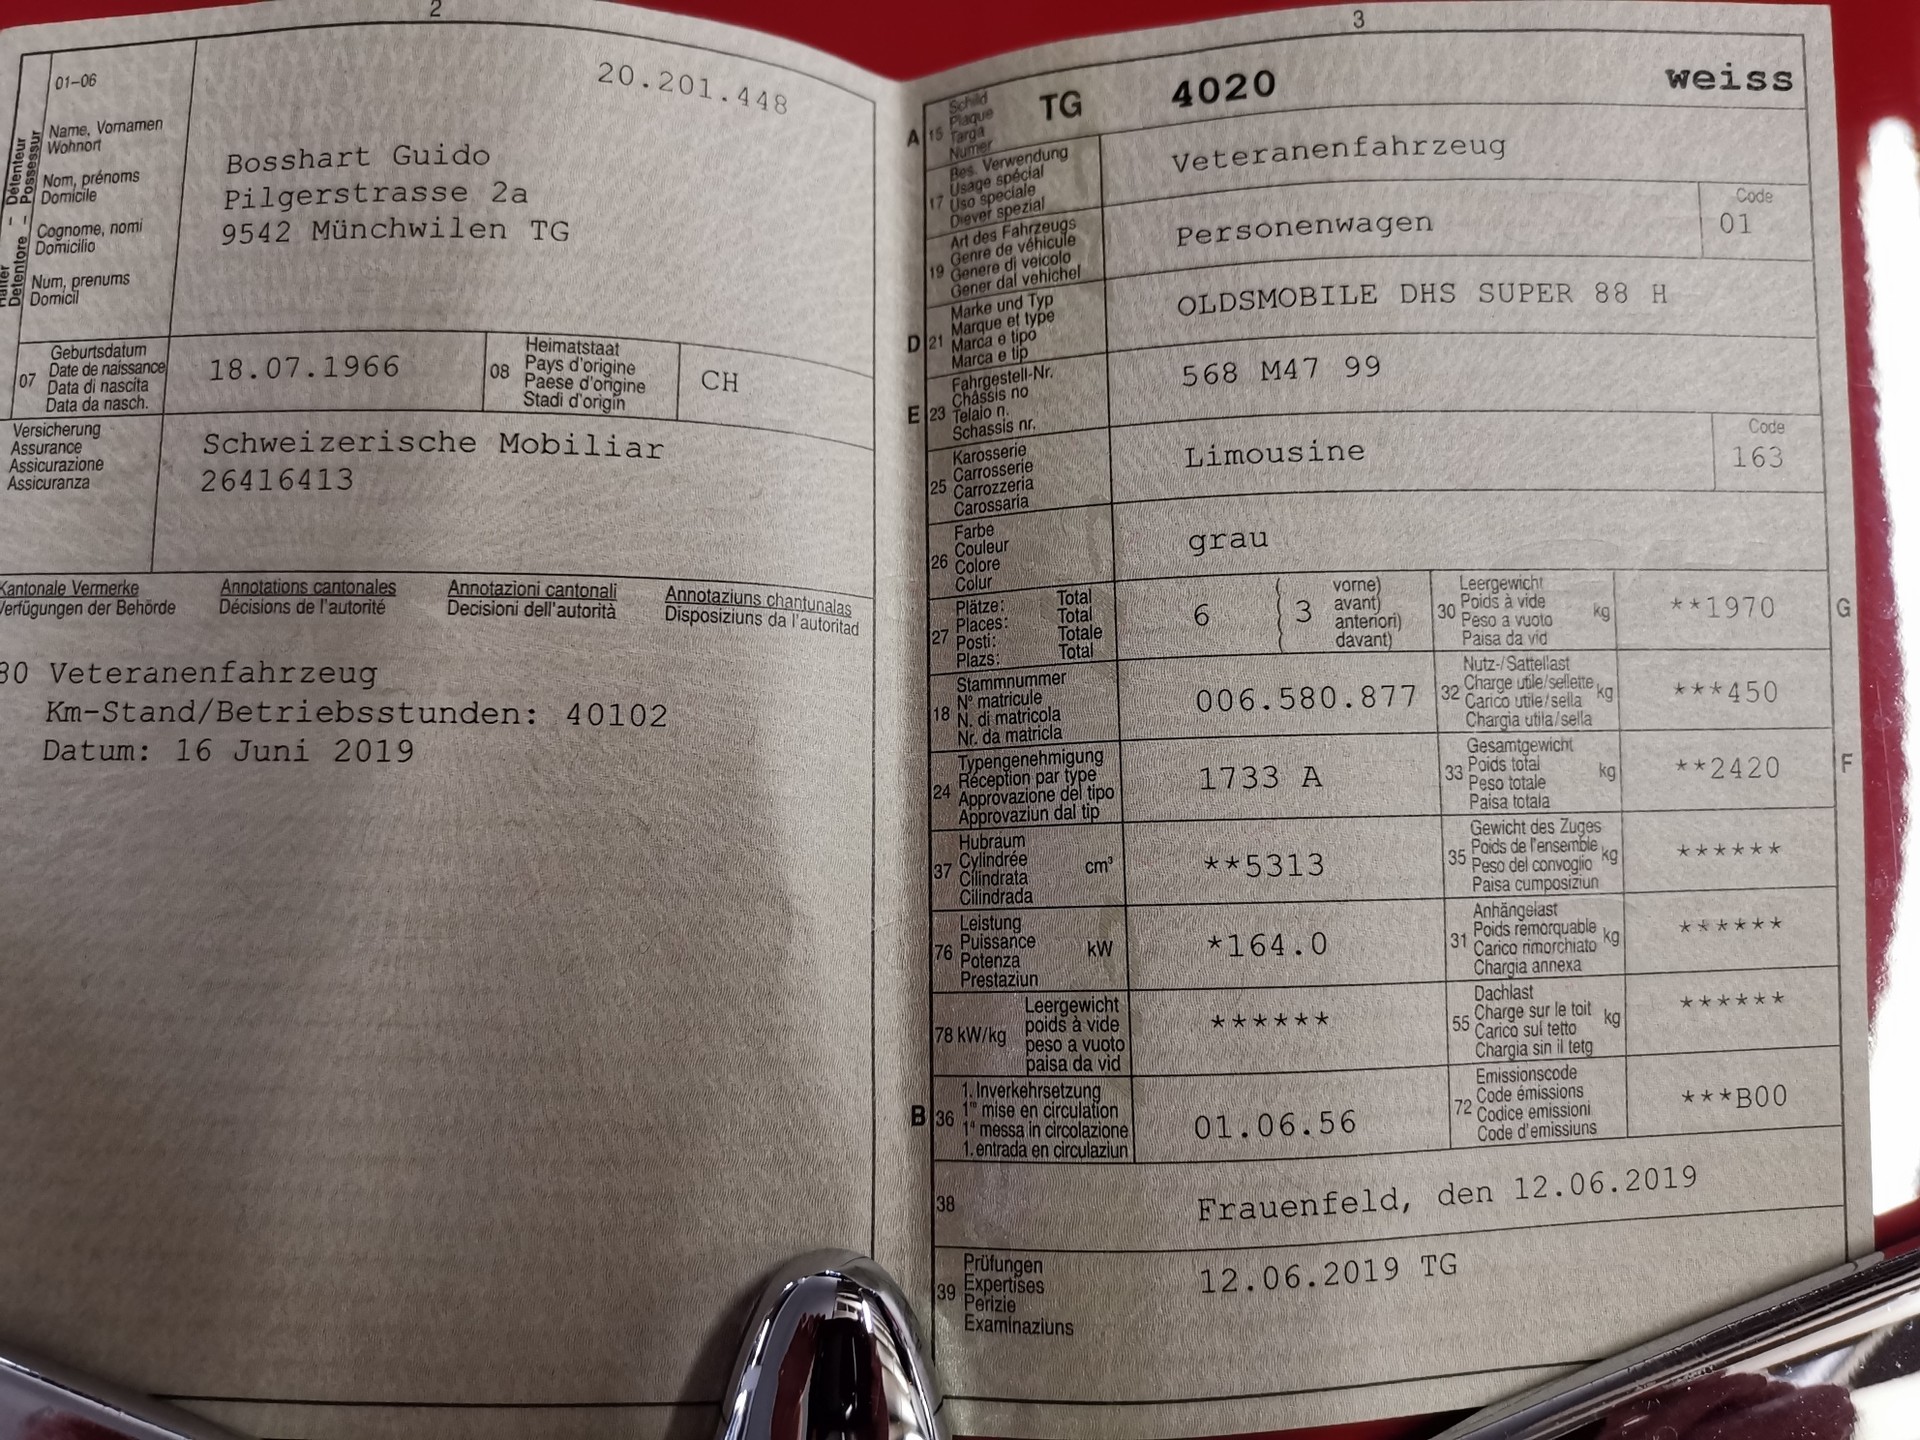 2
01-06
20.201.448
Détenteur
Possessur
Detentore
Name, Vornamen
Wohnort
Nom, prénoms
Domicile
Cognome, nomi
Domicilio
Num, prenums
Domicil
Bosshart Guido
Pilgerstrasse 2a
9542 Münchwilen TG
07 Geburtsdatum
Date de naissance
Data di nascita
Data da nasch.
18.07.1966
08 Heimatstaat
Pays d'origine
Paese d'origine
Stadi d'origin
CH
Versicherung
Assurance
Assicurazione
Assicuranza
Schweizerische Mobiliar
26416413
Kantonale Vermerke
Verfügungen der Behörde
Annotations cantonales
Décisions de l'autorité
Annotazioni cantonali
Decisioni dell'autorità
Annotaziuns chantunalas
Disposiziuns da l'autoritad
80 Veteranenfahrzeug
Km-Stand/Betriebsstunden: 40102
Datum: 16 Juni 2019
3
A 15 Schild
Plaque
Targa
Numer
TG 4020 weiss
17 Bes. Verwendung
Usage spécial
Uso speciale
Diever spezial
Veteranenfahrzeug
19 Art des Fahrzeugs
Genre de véhicule
Genere di veicolo
Gener dal vehichel
Personenwagen
Code
01
D 21 Marke und Typ
Marque et type
Marca e tipo
Marca e tip
OLDSMOBILE DHS SUPER 88 H
E 23 Fahrgestell-Nr.
Châssis no
Telaio n.
Schassis nr.
568 M47 99
25 Karosserie
Carrosserie
Carrozzeria
Carossaria
Limousine
Code
163
26 Farbe
Couleur
Colore
Colur
grau
27 Plätze: Total
Places: Total
Posti: Totale
Plazs: Total
6 ( 3 vorne)
avant)
anteriori)
davant)
30 Leergewicht
Poids à vide kg
Peso a vuoto
Paisa da vid
**1970 G
18 Stammnummer
N° matricule
N. di matricola
Nr. da matricla
006.580.877
32 Nutz-/Sattellast
Charge utile/sellette kg
Carico utile/sella
Chargia utila/sella
***450
24 Typengenehmigung
Réception par type
Approvazione del tipo
Approvaziun dal tip
1733 A
33 Gesamtgewicht
Poids total kg
Peso totale
Paisa totala
**2420 F
37 Hubraum
Cylindrée cm³
Cilindrata
Cilindrada
**5313
35 Gewicht des Zuges
Poids de l'ensemble kg
Peso del convoglio
Paisa cumposiziun
******
76 Leistung
Puissance kW
Potenza
Prestaziun
*164.0
31 Anhängelast
Poids remorquable kg
Carico rimorchiato
Chargia annexa
******
78 kW/kg Leergewicht
poids à vide
peso a vuoto
paisa da vid
******
55 Dachlast
Charge sur le toit kg
Carico sul tetto
Chargia sin il tetg
******
B 36 1. Inverkehrsetzung
1re mise en circulation
1a messa in circolazione
1. entrada en circulaziun
01.06.56
72 Emissionscode
Code émissions
Codice emissioni
Code d'emissiuns
***B00
38 Frauenfeld, den 12.06.2019
39 Prüfungen
Expertises
Perizie
Examinaziuns
12.06.2019 TG